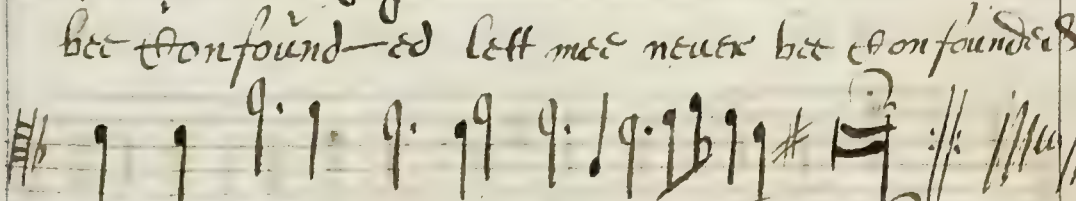 bee Confound—ed lett mee neuer bee Confounded